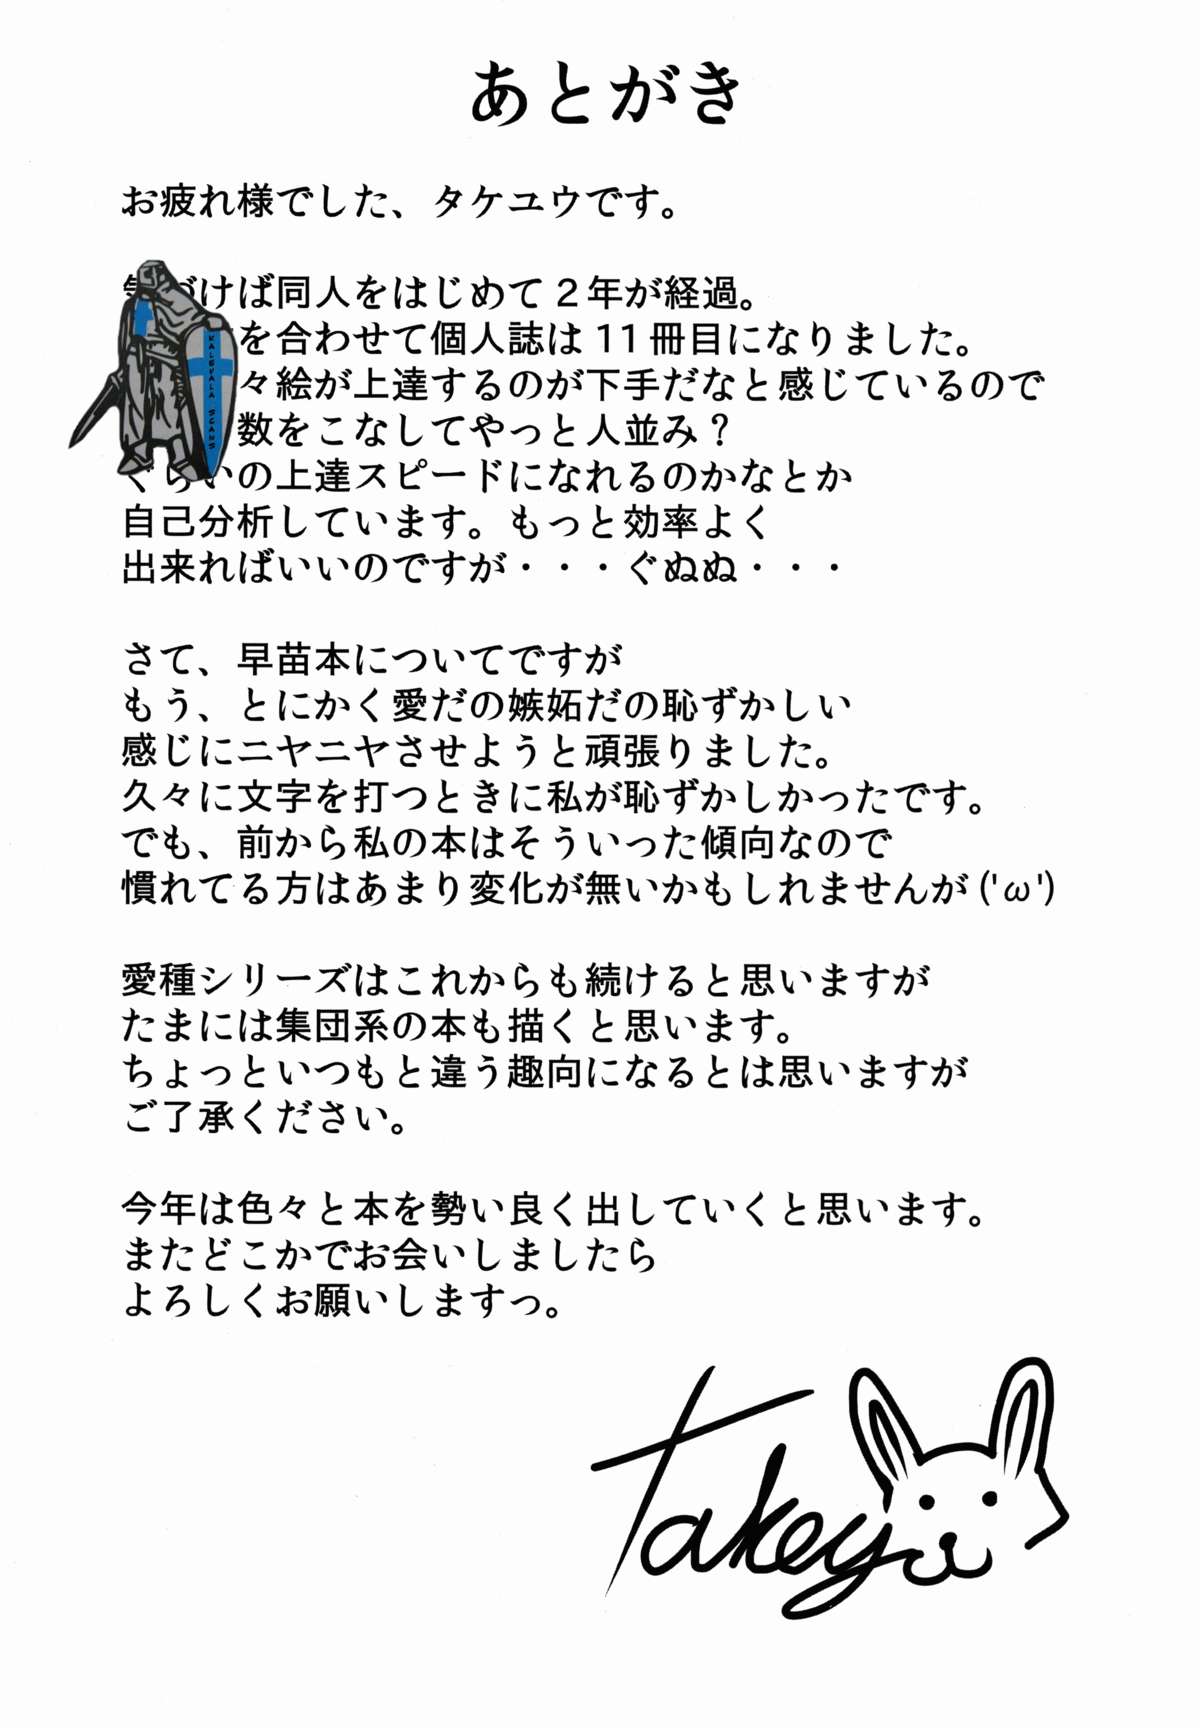 あとがき
お疲れ様でした、タケユウです。
づけば同人をはじめて２年が経過。
を合わせて個人誌は11冊目になりました。
々絵が上達するのが下手だなと感じているので
数をこなしてやっと人並み？
ぐらいの上達スピードになれるのかなとか
自己分析しています。もっと効率よく
出来ればいいのですが・・・ぐぬぬ・・・
さて、早苗本についてですが
もう、とにかく愛だの嫉妬だの恥ずかしい
感じにニヤニヤさせようと頑張りました。
久々に文字を打つときに私が恥ずかしかったです。
でも、前から私の本はそういった傾向なので
慣れてる方はあまり変化が無いかもしれませんが('ω')
愛種シリーズはこれからも続けると思いますが
たまには集団系の本も描くと思います。
ちょっといつもと違う趣向になるとは思いますが
ご了承ください。
今年は色々と本を勢い良く出していくと思います。
またどこかでお会いしましたら
よろしくお願いしますっ。
Takeyu
KALEVALA SCANS